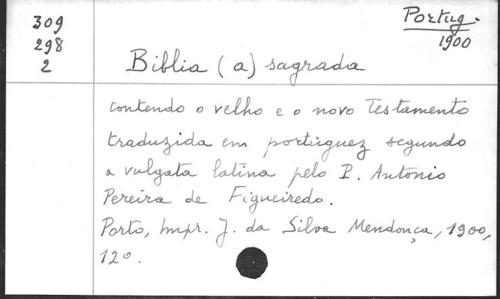 309
298
2
Portug.
1900
Biblia (a) sagrada
contendo o velho e o novo Testamento
traduzida em portuguez segundo
a vulgata latina pelo P. Antonio
Pereira de Figueiredo.
Porto, Impr. J. da Silva Mendonça, 1900,
12º.